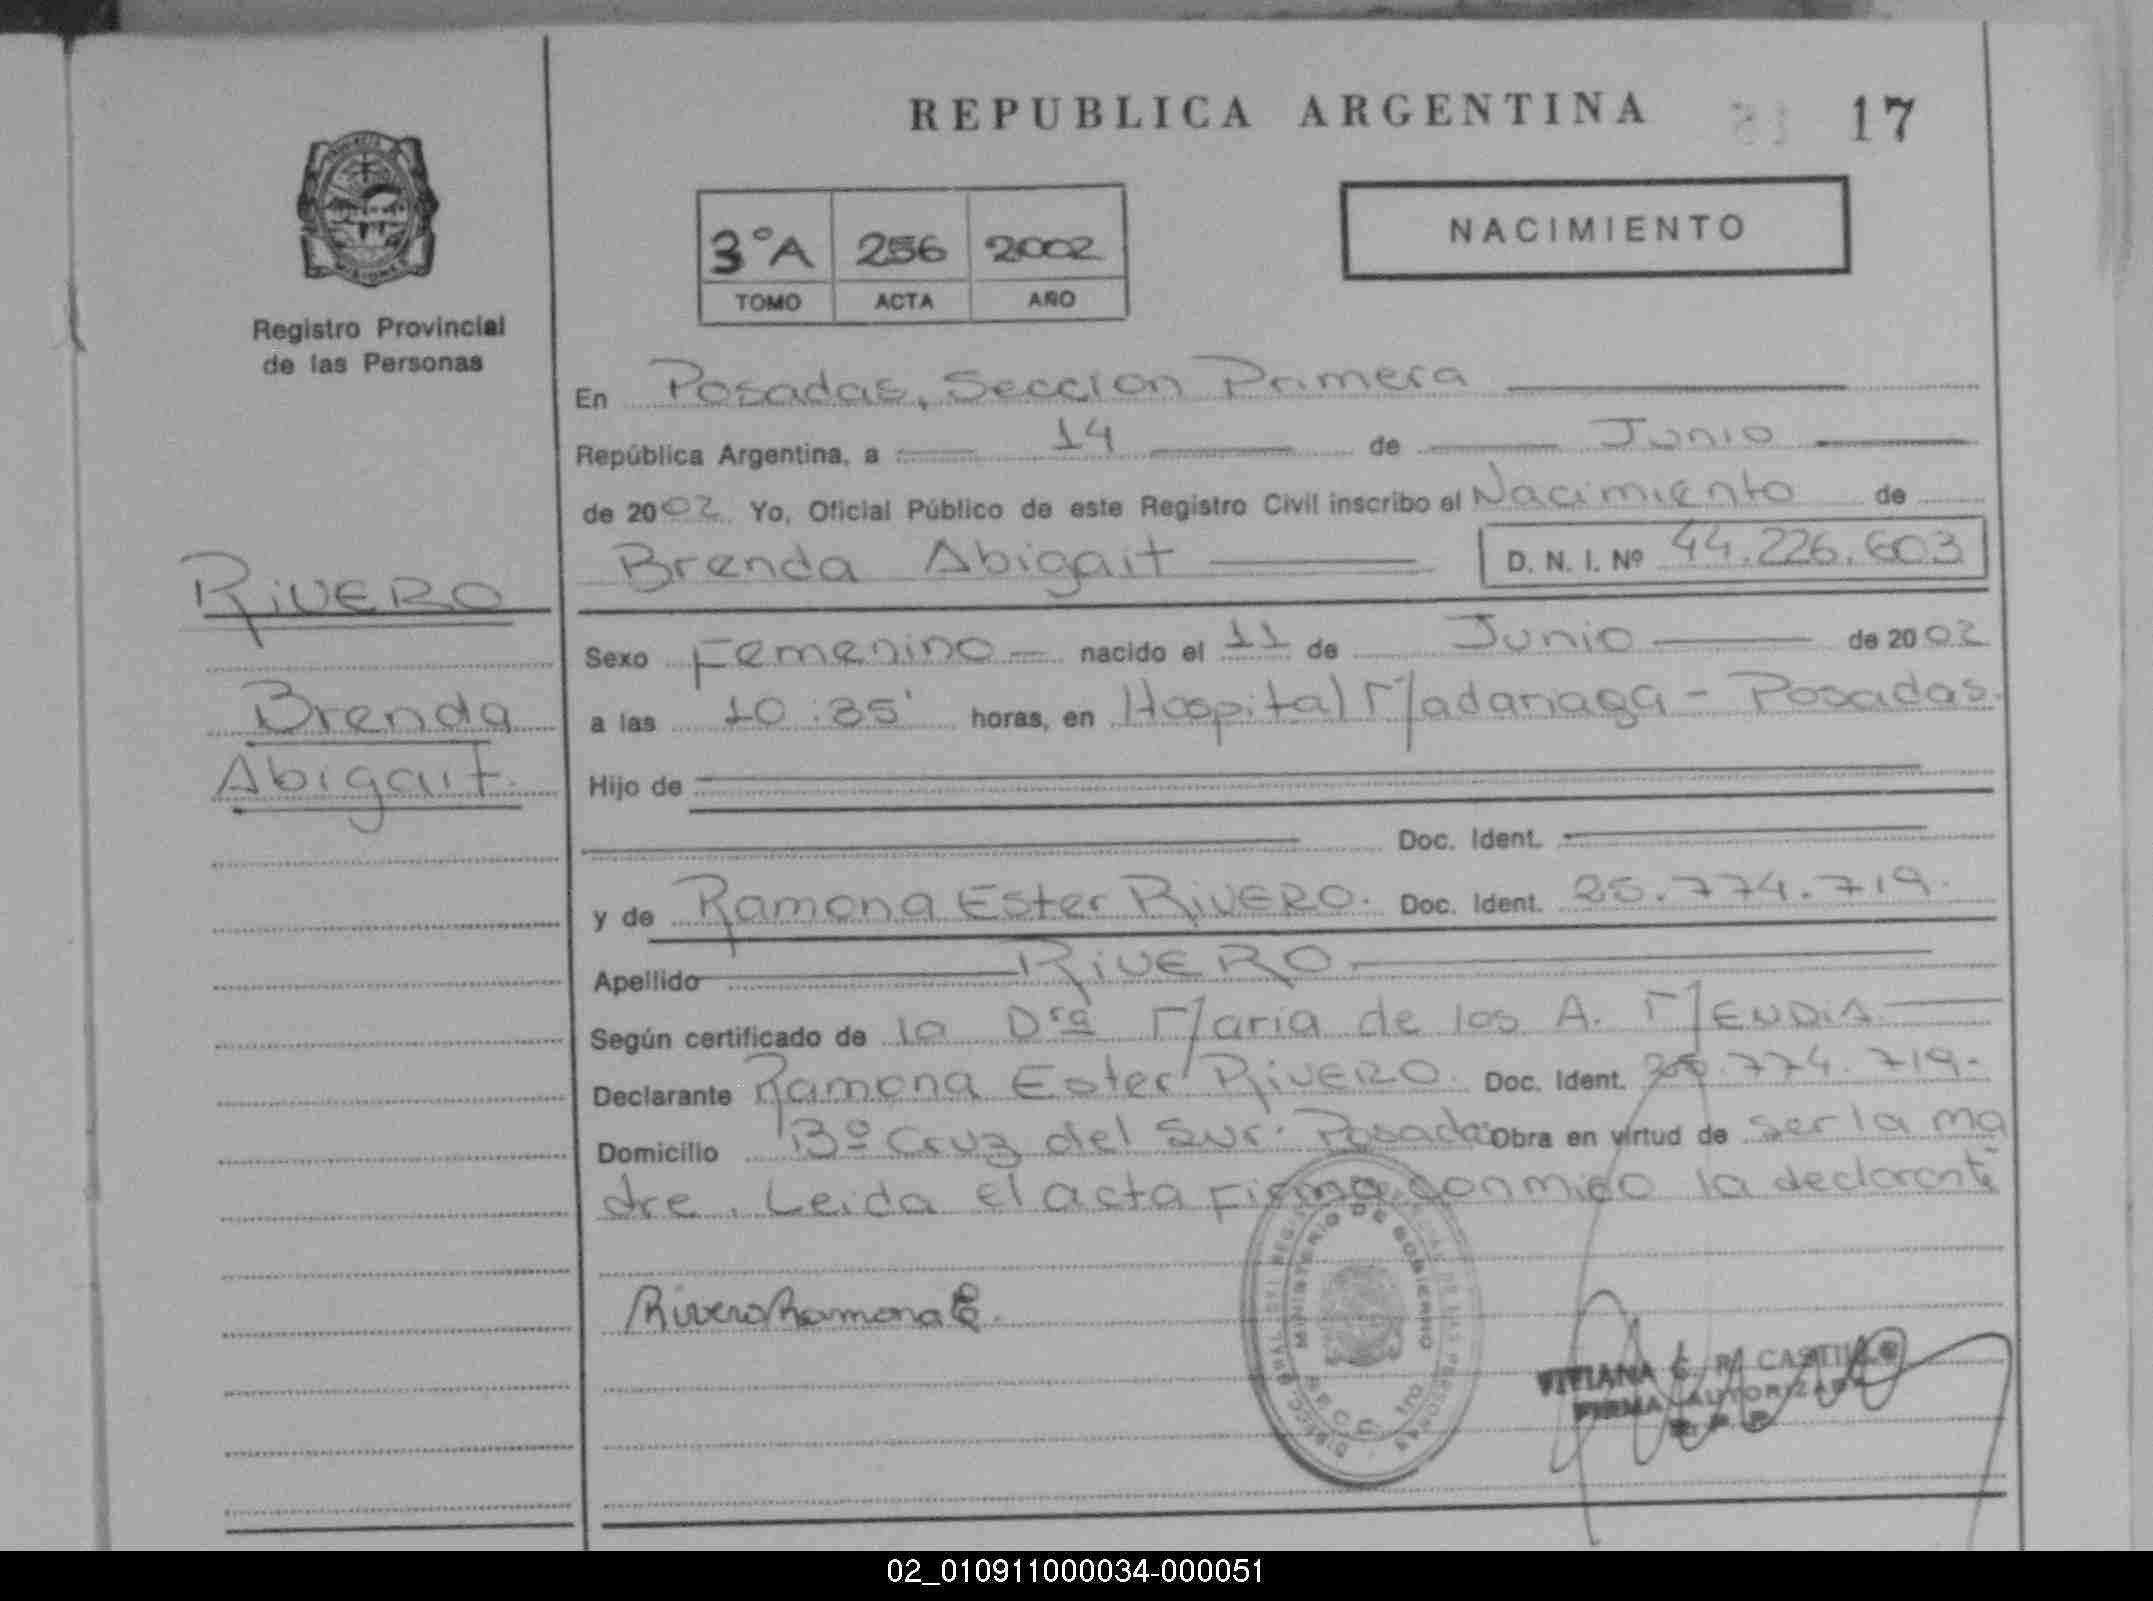 REPUBLICA ARGENTINA 17
NACIMIENTO
3°A 256 2002
TOMO ACTA AÑO
Registro Provincial
de las Personas
En Posadas, Sección Primera
República Argentina, a 14 de Junio
de 2002 Yo, Oficial Público de este Registro Civil inscribo el Nacimiento de
Brenda Abigait D. N. I. Nº 44.226.603
RIVERO
Brenda
Abigait.
Sexo Femenino nacido el 11 de Junio de 2002
a las 10:35' horas, en Hospital Madariaga - Posadas.
Hijo de
Doc. Ident.
y de Ramona Ester RIVERO. Doc. Ident. 25.774.719.
Apellido RIVERO
Según certificado de la Drª Maria de los A. MENDIA
Declarante Ramona Ester RIVERO. Doc. Ident. 774.719.-
Domicilio Bº Cruz del Sur. Posadas Obra en virtud de ser la ma
dre. Leida el acta firma conmigo la declarante
Rivero Ramona E.
MINISTERIO DE GOBIERNO
VIVIANA C. R. CASTILLO
FIRMA AUTORIZADA
R. P. P.
02_010911000034-000051